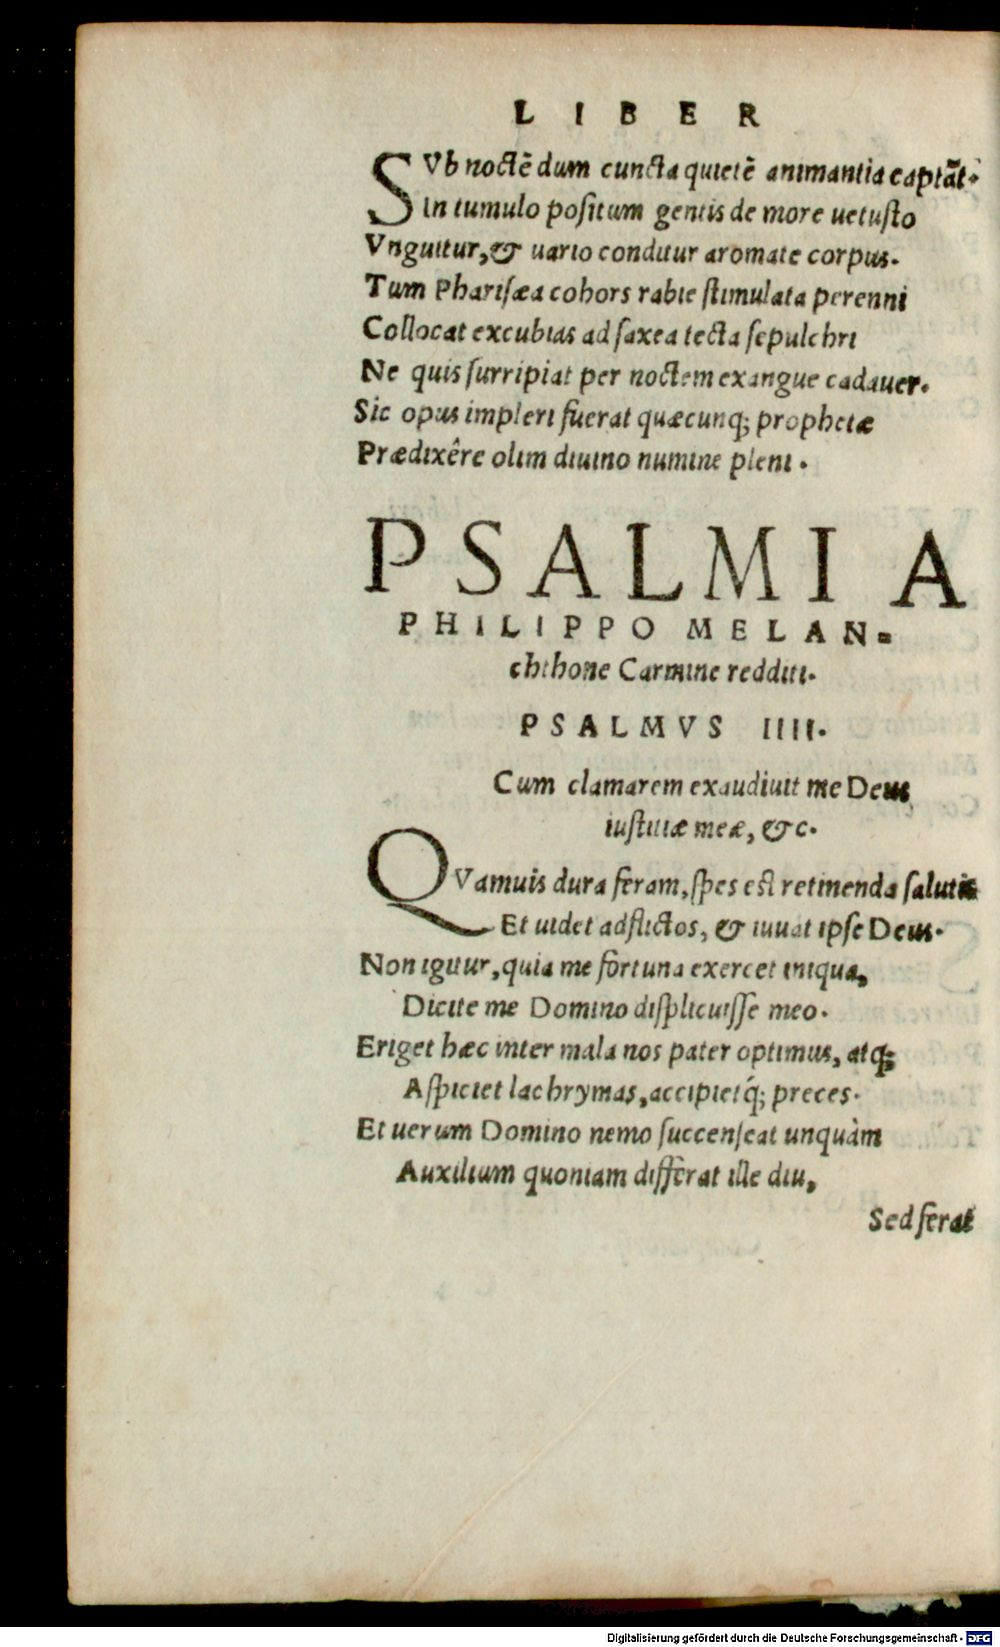 LIBER
SVb noctē dum cuncta quietē animantia captāt.
In tumulo positum gentis de more uetusto
Vnguitur, & uario conditur aromate corpus.
Tum Pharisæa cohors rabie stimulata perenni
Collocat excubias ad saxea tecta sepulchri
Ne quis surripiat per noctem exangue cadauer.
Sic opus impleri fuerat quæcunq; prophetæ
Prædixêre olim diuino numine pleni.
PSALMI A
PHILIPPO MELAN-
chthone Carmine redditi.
PSALMVS IIII.
Cum clamarem exaudiuit me Deus
iustitiæ meæ, &c.
QVamuis dura feram, spes est retinenda salutis
Et uidet adflictos, & iuuat ipse Deus.
Non igitur, quia me fortuna exercet iniqua,
Dicite me Domino displicuisse meo.
Eriget hæc inter mala nos pater optimus, atq;
Aspiciet lachrymas, accipietq́; preces.
Et uerum Domino nemo succenseat unquàm
Auxilium quoniam differat ille diu,
Sed ferat
Digitalisierung gefördert durch die Deutsche Forschungsgemeinschaft - DFG